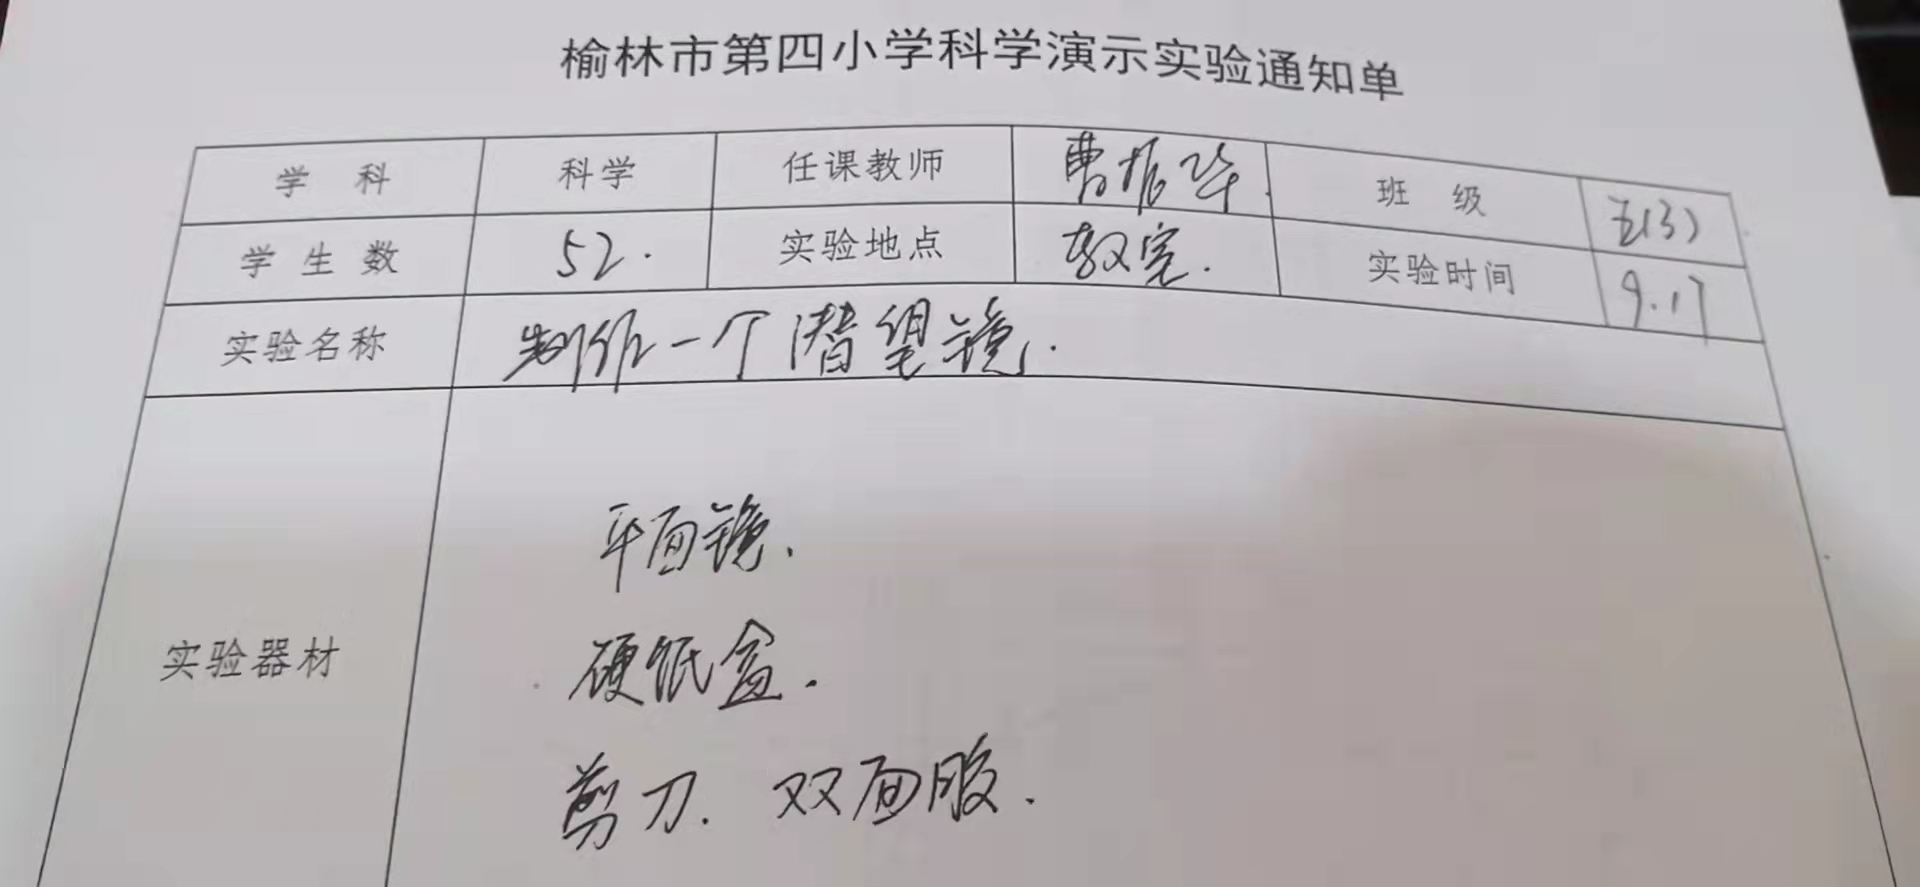 榆林市第四小学科学演示实验通知单
学 科 科学 任课教师 曹振华. 班 级 五(3)
学 生 数 52. 实验地点 教室. 实验时间 9.17
实验名称 制作一个潜望镜.
平面镜.
实验器材 硬纸盒.
剪刀. 双面胶.